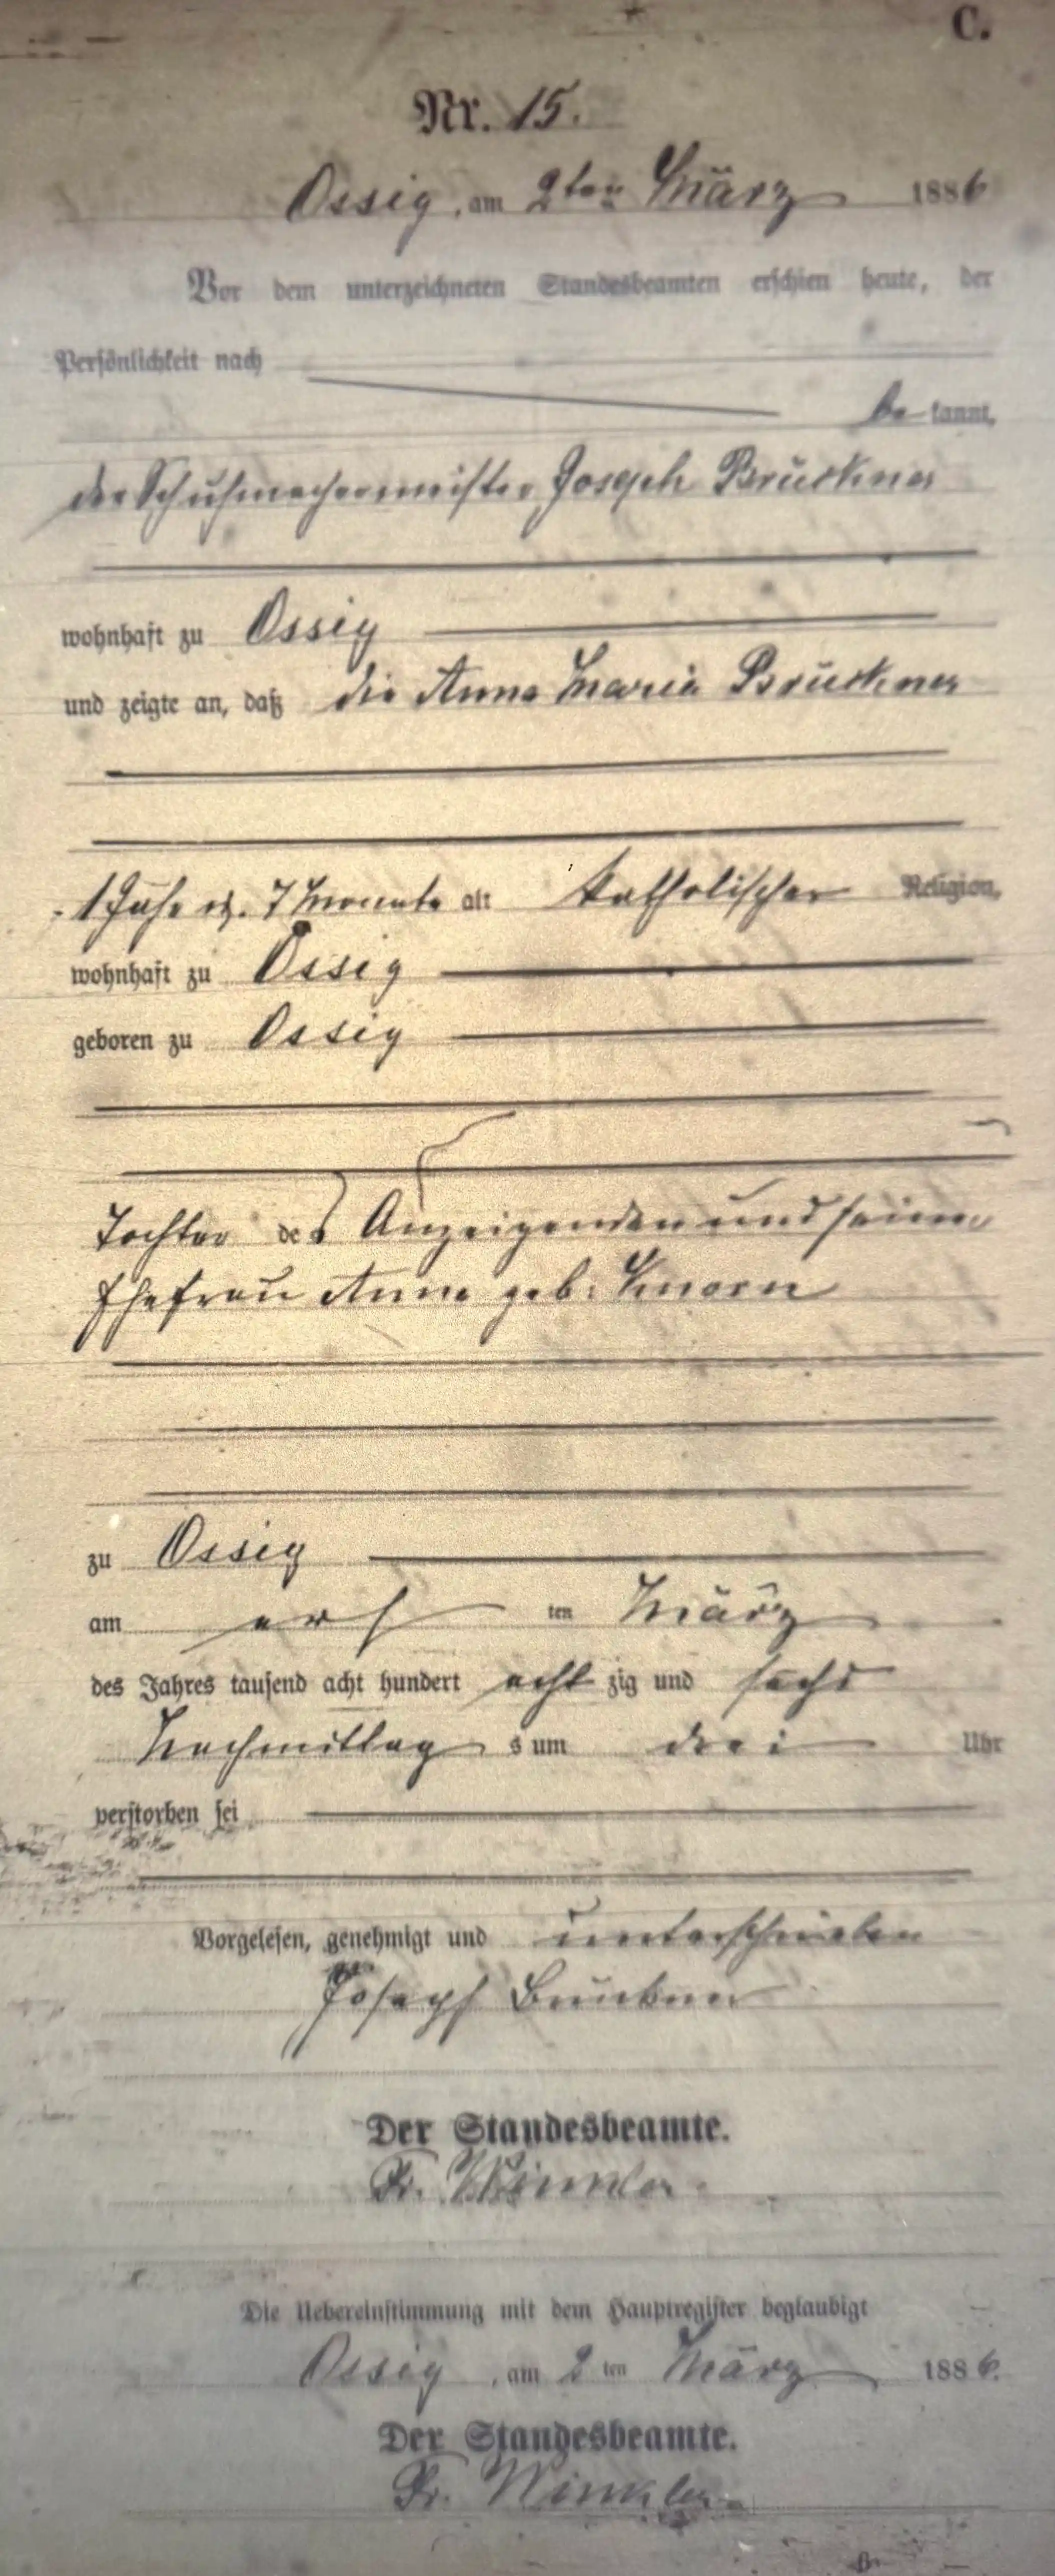 C.
Nr. 15.
Ossig, am 2ten März 1886
Vor dem unterzeichneten Standesbeamten erschien heute, der
Persönlichkeit nach
be kannt,
der Schuhmachermeister Joseph Brückner
wohnhaft zu Ossig
und zeigte an, daß die Anna Maria Brückner
1 Jahr u. 7 Monate alt katholischer Religion,
wohnhaft zu Ossig
geboren zu Ossig
Tochter des Anzeigenden und seiner
Ehefrau Anna geb.
zu Ossig
am erst ten März
des Jahres tausend acht hundert acht zig und sechs
Nachmittag s um drei Uhr
verstorben sei
Vorgelesen, genehmigt und unterschrieben
Joseph Brückner
Der Standesbeamte.
Fr. Winkler.
Die Uebereinstimmung mit dem Hauptregister beglaubigt
Ossig, am 2 ten März 1886.
Der Standesbeamte.
Fr. Winkler.